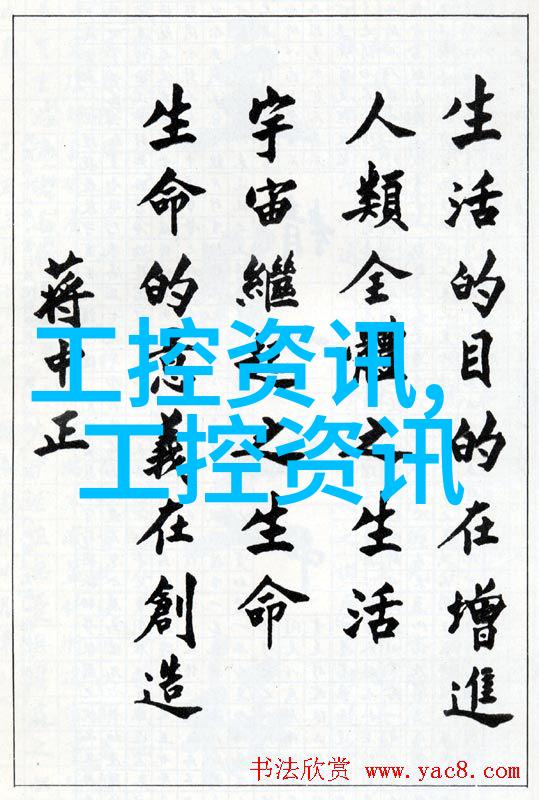 生活的目的在增進
人類全體之生活
宇宙繼起之生命
生命的意義在創造
蔣中正
工控资讯,
工控资讯
书法欣赏 www.yac8.com